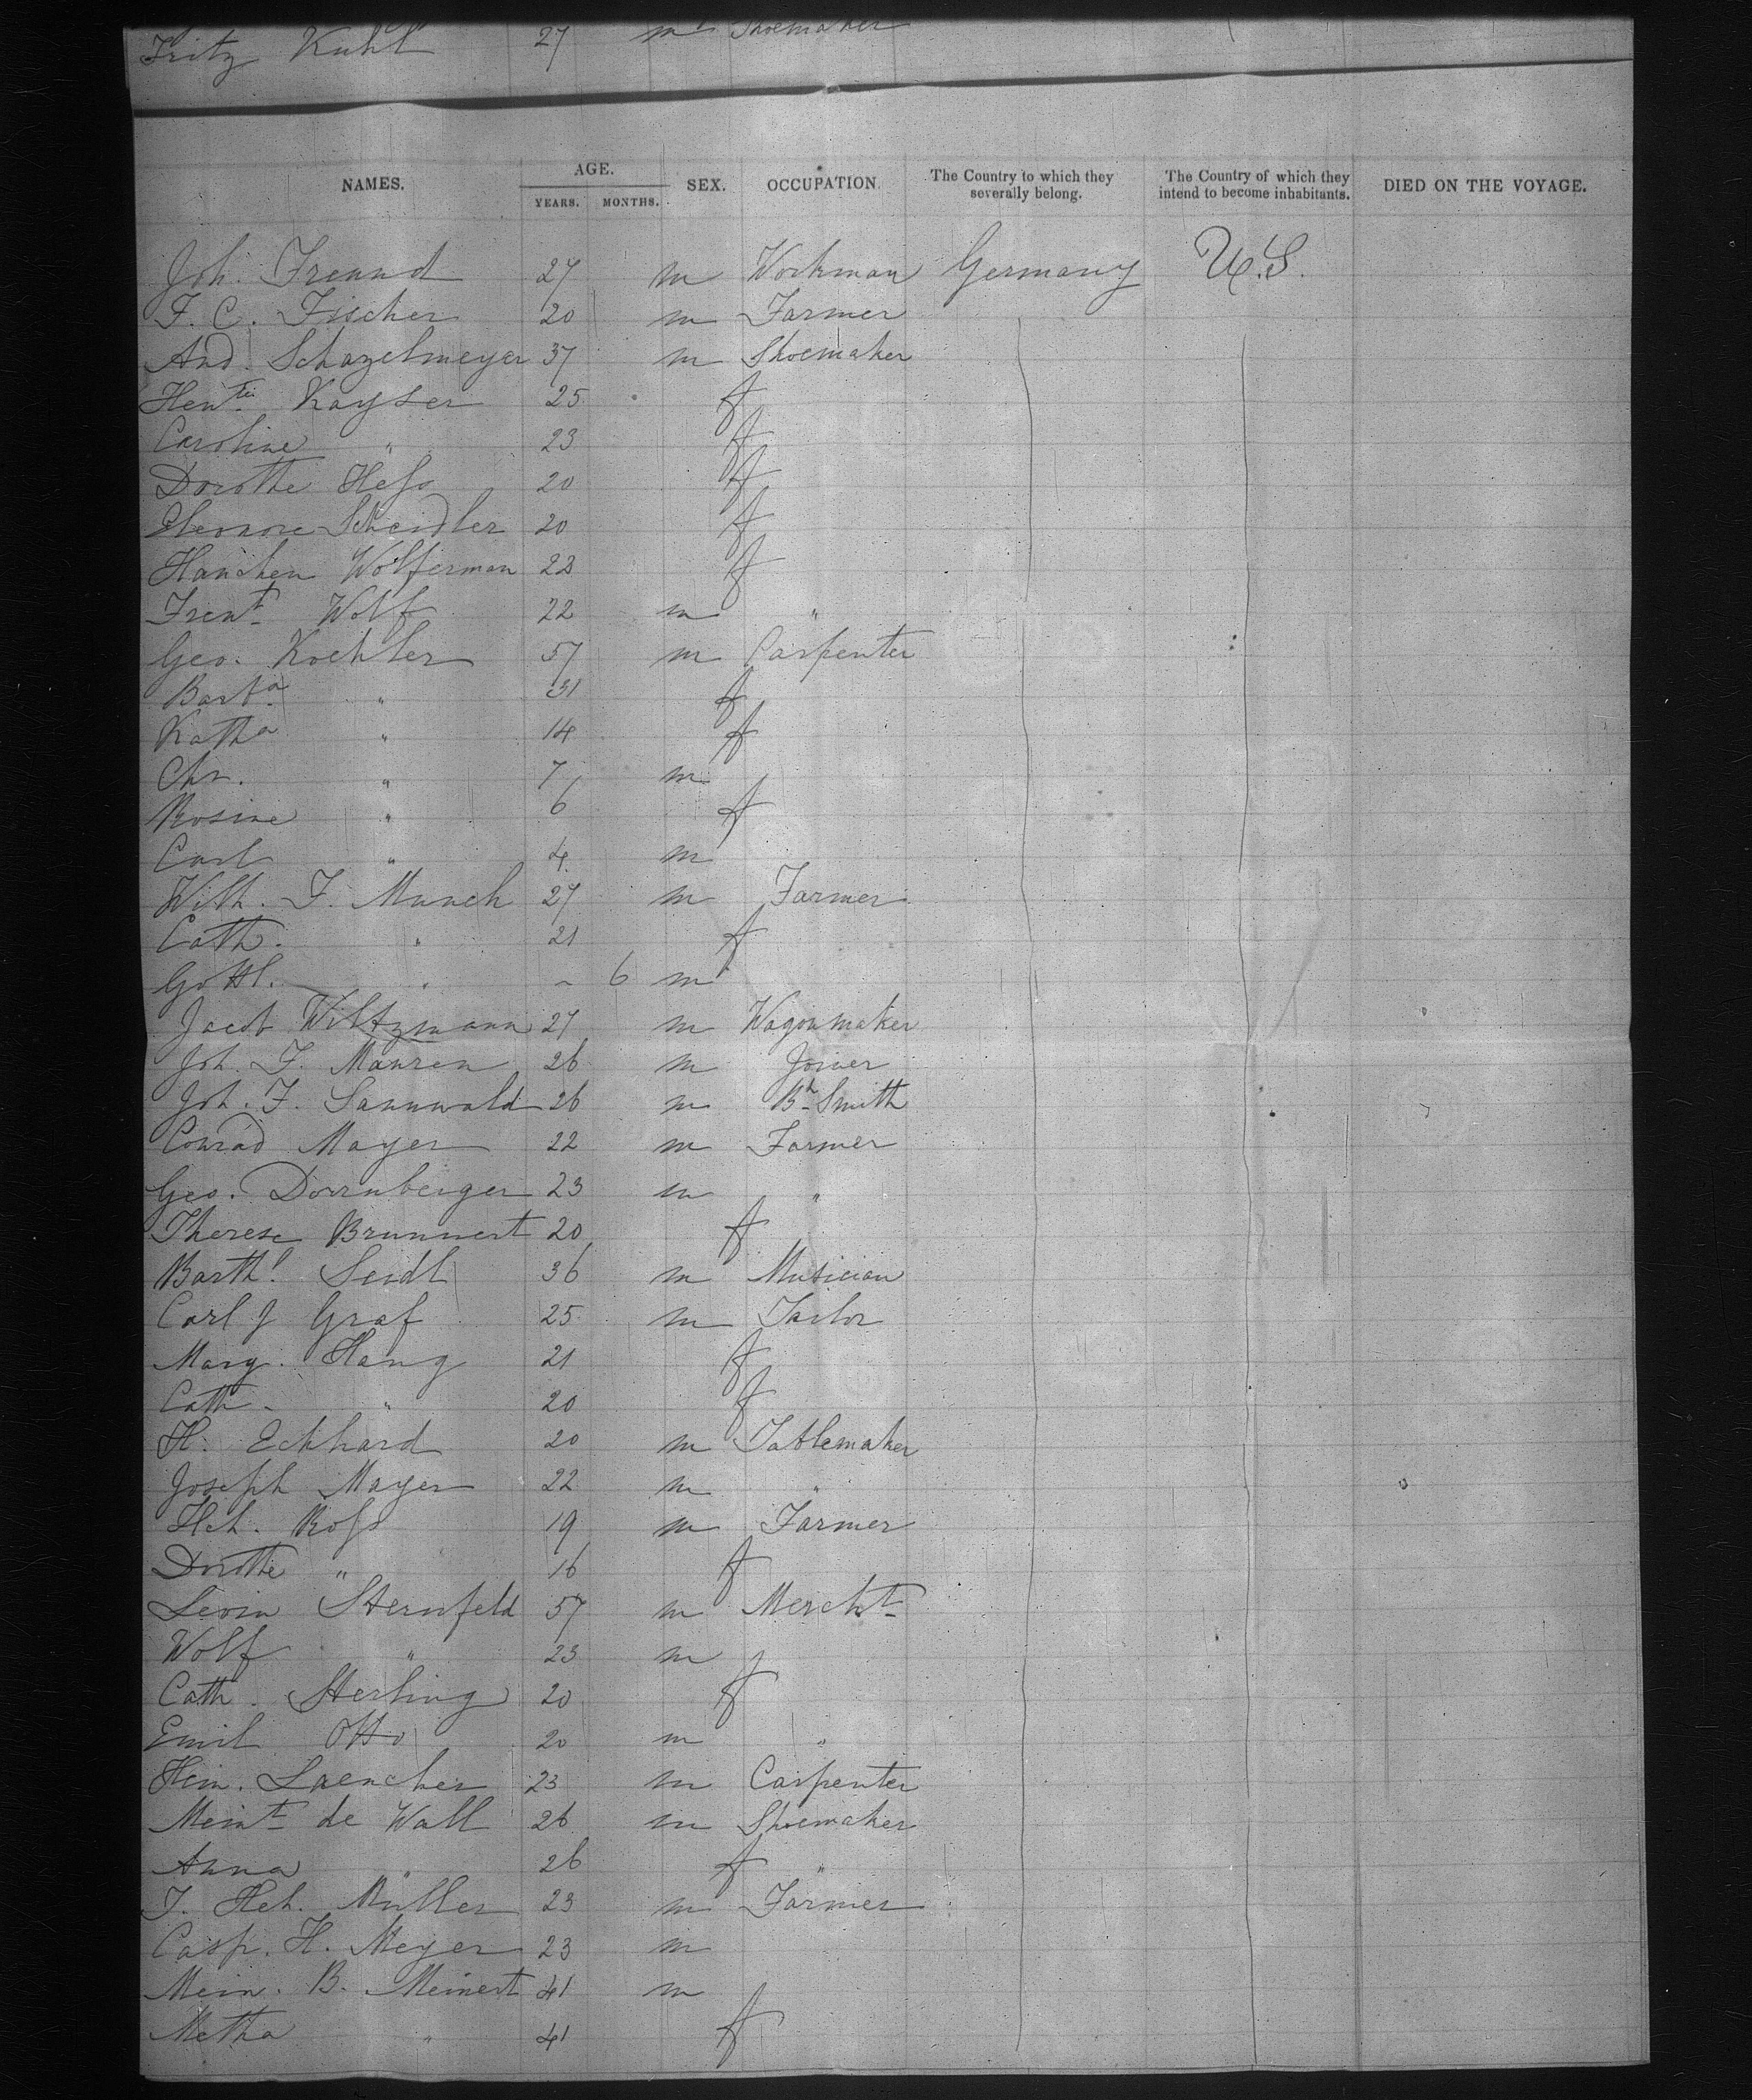 Fritz Kuhl 27 m Shoemaker
NAMES. AGE. YEARS. MONTHS. SEX. OCCUPATION. The Country to which they severally belong. The Country of which they intend to become inhabitants. DIED ON THE VOYAGE.
Joh. Freund 27 m Workman Germany U.S.
F. C. Fischer 20 m Farmer
And. Schazelmeyer 37 m Shoemaker
Hentte Kayser 25 f
Caroline " 23 f
Dorothe Hess 20 f
Eleonore Scheidler 20 f
Hanchen Wolferman 22 f
Wolf 22 m "
Geo. Koehler 57 m Carpenter
Barba " 31 f
Katha " 14 f
Chr. " 7 m
Rosine " 6 f
Carl " 4 m
Wilh. F. Munch 27 m Farmer
Cath. " 21 f
Gottl. " - 6 m
Jacob Wiltzmann 27 m Wagonmaker
Joh. F. Mauren 26 m Joiner
Joh. F. Sannwald 26 m Bk Smith
Conrad Mayer 22 m Farmer
Geo. Dornberger 23 m "
Therese Brunnert 20 f
Barthl. Seidl 36 m Musician
Carl J Graf 25 m Tailor
Marg. Hang 21 f
Cath. " 20 f
H. Eckhard 20 m Tablemaker
Joseph Mayer 22 m "
Hch. Ross 19 m Farmer
Dorothe " 16 f
Levin Sternfeld 57 m Mercht
Wolf " 23 m
Cath. Sterling 20 f
Emil Otto 20 m "
Hein. Laencher 23 m Carpenter
Meint de Wall 26 m Shoemaker
Anna " 26 f "
J. Hch. Muller 23 m Farmer
Casp. H. Meyer 23 m
Mein. B. Meinert 41 m
Metha " 41 f